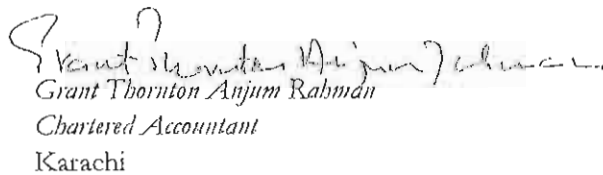 Grant Thornton Anjum Rahman
Grant Thornton Anjum Rahman
Chartered Accountant
Karachi